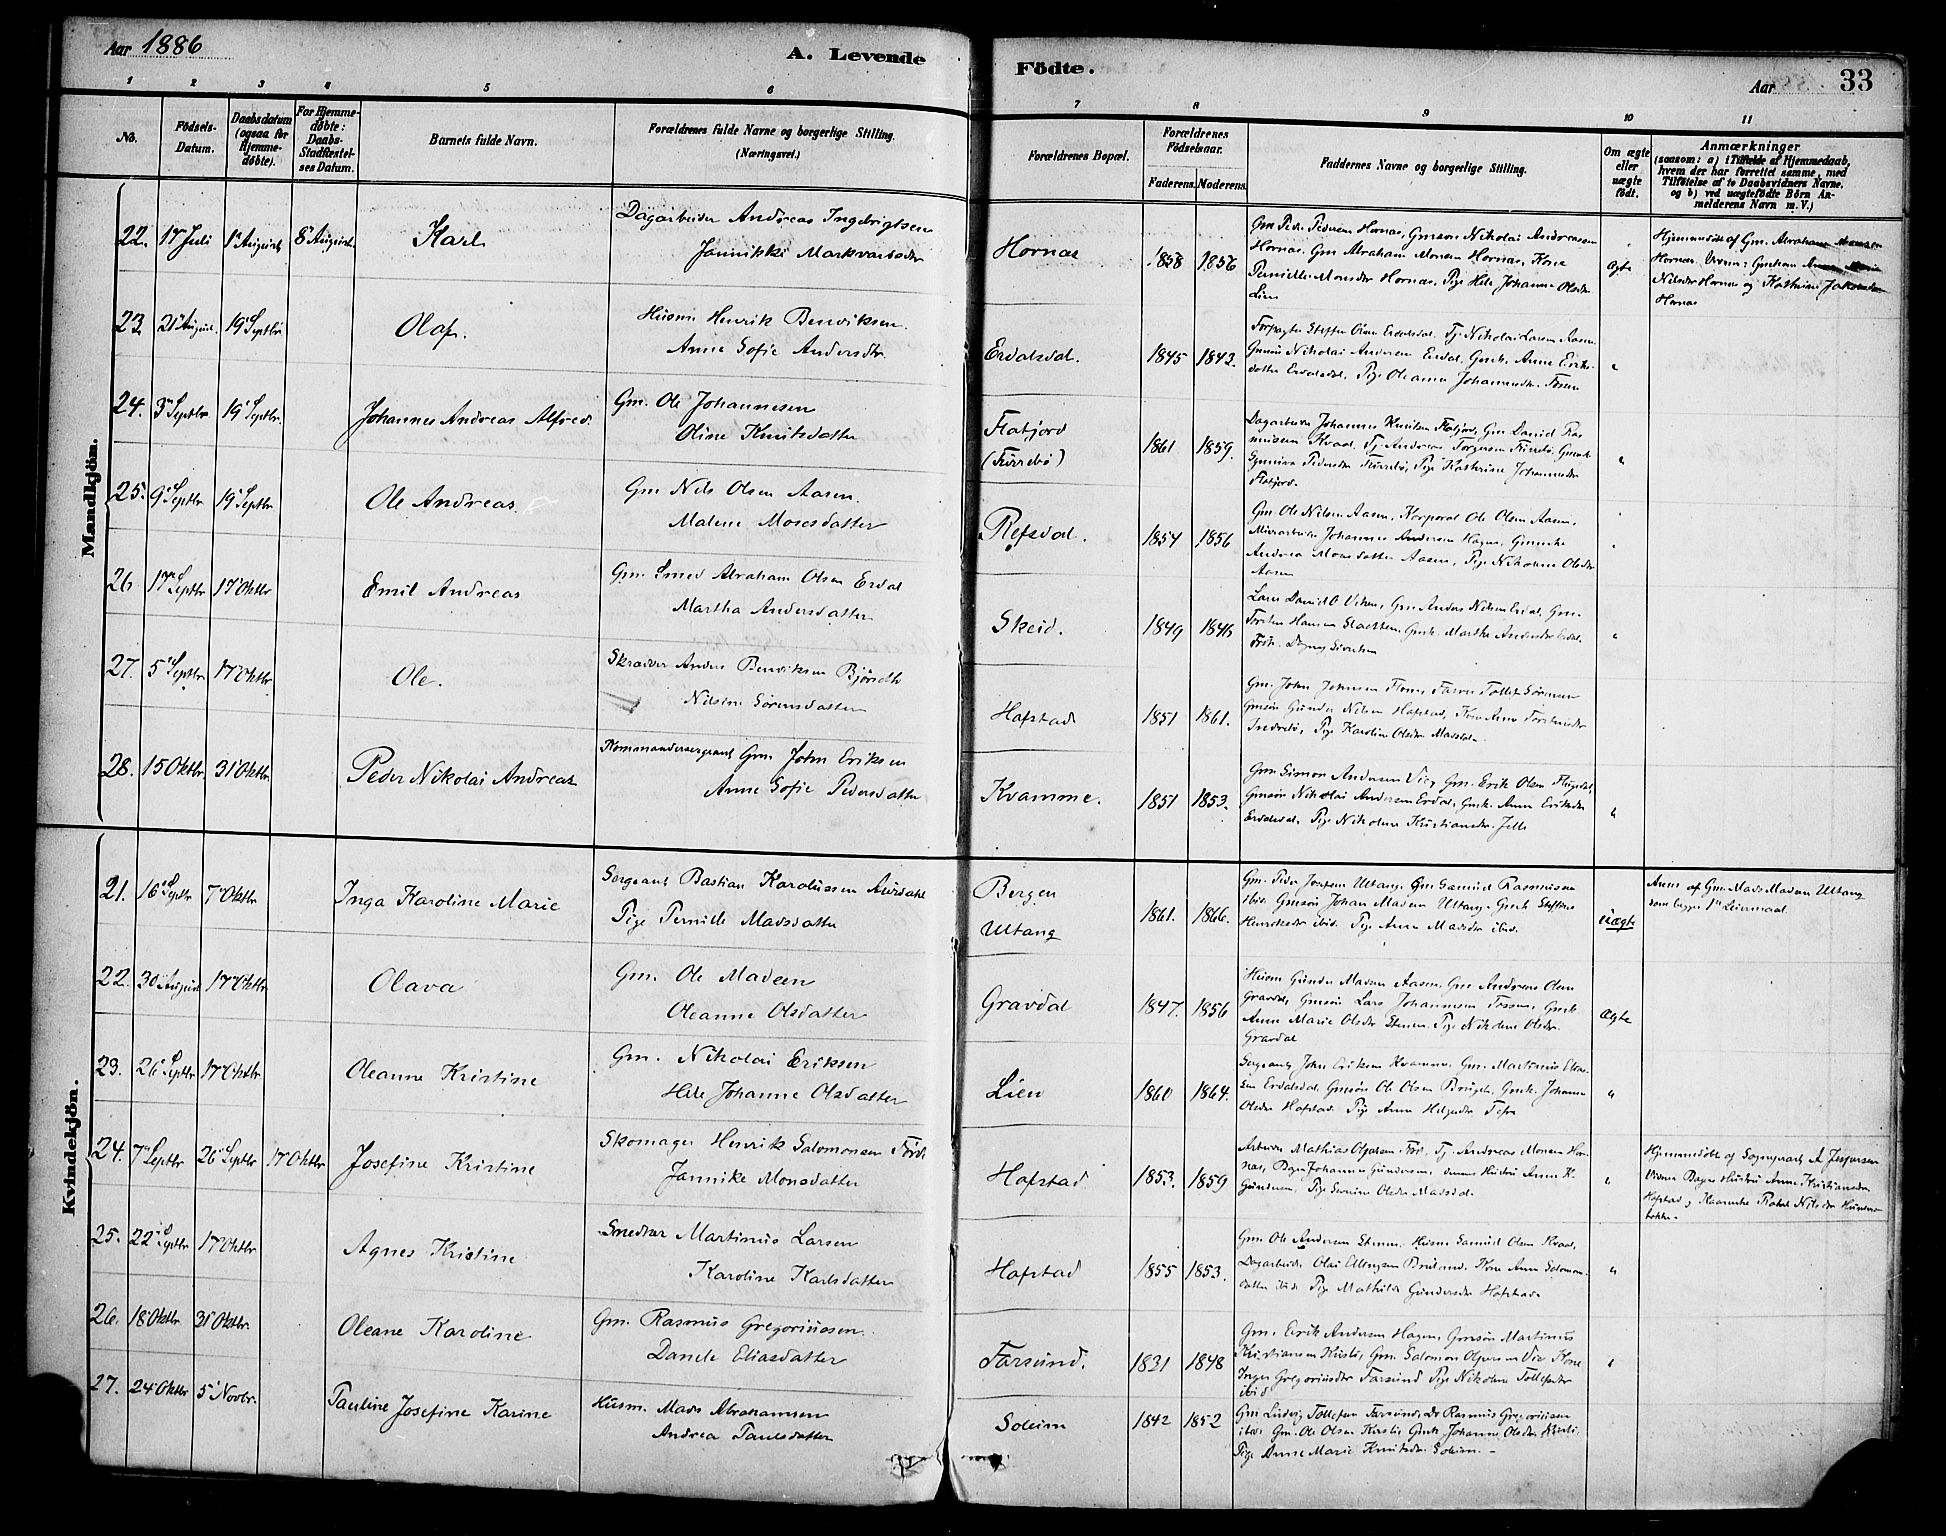 Aar 1886
A. Levende Födte.
Aar
33
1 2 3 4 5 6 7 8 9 10 11
No. Födsels-Datum. Daabsdatum (ogsaa for Hjemme-döbte). For Hjemme-döbte: Daabs-Stadfæstel-ses Datum. Barnets fulde Navn. Forældrenes fulde Navne og borgerlige Stilling. (Næringsvei.) Forældrenes Bopæl. Forældrenes Födselsaar. Faderens. Moderens. Faddernes Navne og borgerlige Stilling. Om ægte eller uægte födt. Anmærkninger (saasom: a) i Tilfælde af Hjemmedaab, hvem der har forrettet samme, med Tilföielse af to Daabsvidners Navne, og b) ved uægtefödte Börn An-melderens Navn m. V.)
Mandkjön.
22. 17 Juli 1 August 8 August Karl Dagarbeider Andreas Ingebrigtsen
Jannikke Markvardsdtr
Hornas 1858 1856
Gm Peder Pedersen Hornas, Gmsøn Nikolai Andreassen
Hornas, Gm Abraham Monsen Hornas, Kone
Pernille Monsdtr Hornas, Pige Hele Johanne Olsdtr
Lien
ægte
Hjemmedöbt af Gm. Abraham Monsen
Hornas
Nilsdtr Hornas og Kathrine
Hornas
23. 21 August 19 Septbr Olaf. Husm Henrik Bendiksen.
Anne Sofie Andersdtr.
Erdalsdal. 1845 1843.
Steffen Olsen Erdalsdal, Tj. Nikolai Larsen Aasen
Gmsøn Nikolai Andersen Erdal, Gmk. Anne Eriks-
datter Erdalsdal, Pige Oleanna Johannesdtr.
"
24. 3 Septbr 19 Septbr. Johannes Andreas Alfred. Gm. Ole Johannesen
Oline Knutsdatter
Flatjord
(Furrebö)
1861 1859.
Dagarbeider Johannes Knutsen Flatjord, Gm David Ras
mussen Kvaal, Tj. Andreas Torgersen Furrebö, Gmk
Synneva Pedersdtr Furrebö, Pige Kathrine Johannesdtr
Flatjord.
"
25. 9 Septbr 19 Septbr Ole Andreas. Gm Nils Olsen Aasen.
Malene Mosesdatter
Refsdal. 1854 1856
Gm. Ole Nilsen Aasen, Korporal Ole Olsen Aasen,
Johannes Andersen Hagen,
Andrea Monsdatter Aasen, Pige Nikoline Olsdtr
Aasen
26 17 Septbr 17 Oktbr Emil Andreas Gm. Smed Abraham Olsen Erdal
Martha Andersdatter
Skeid. 1849 1846
Lars David O Viken, Gm Anders Nilsen Erdal, Gm.
Torsten Hansen Gmk. Martha Andersdtr Erdal.
"
27. 5 Septbr 17 Oktbr Ole. Skrædder Anders Bendiksen Bjørseth
Nilsine Sörensdatter
Hafstad 1851 1861.
Gm. John Johnsen Sörensen
Gmsøn Gunder Nilsen Hafstad, Kone Anne Torstensdtr
Indrebö, Pige Karoline Olsdtr
28. 15 Oktbr. 31 Oktbr. Peder Nikolai Andreas Kommandersergeant Gm. John Eriksen
Anne Sofie Pedersdatter
Kvamme. 1851 1853.
Gm Simon Andersen Vie, Gm. Erik Olsen
Gmsøn Nikolai Andersen Erdal, Gmk. Anne Eriksdtr
Erdalsdal, Pige Nikoline Kristiansdtr. Jelle
"
Kvindekjön.
21. 16 Septbr 7 Oktbr Inga Karoline Marie Sergeant Bastian Karolussen Aurdahl
Pige Pernille Madsdatter
Bergen
Utvang
1861. 1866.
Gm. Peder Josefsen Utvang, Gm Samuel Rasmussen
ibid. Gmsøn Johan Madsen Utvang, Gmk Steffine
Henriksdtr ibid. Pige Anne Madsdtr ibid.
uægte
Anm af Gm. Mads Madsen Utvang
som begges 1ste Leiermaal
22. 30 August 17 Oktbr Olava Gm. Ole Madsen
Oleanne Olsdatter
Gravdal 1847. 1856
Husm Gunder Madsen Aasen, Gm Andreas Olsen
Gravdal, Gmsøn Lars Johannesen Gmk.
Anne Marie Olsdtr Pige Nikoline Olsdtr.
Gravdal
Ægte
23. 26 Septbr 17 Oktbr Oleanne Kristine Gm. Nikolai Eriksen
Hele Johanne Olsdatter
Lien 1860 1864.
Sergeant John Eriksen Kvamme, Gm. Martinus
Erdalsdal, Gmsøn Ole Olsen Gmk. Johanne
Olsdtr Hafstad, Pige Anne Helgesdtr
"
24. 7 Septbr 26 Septbr 17 Oktbr Josefine Kristine Skomager Henrik Salomonsen Förde
Jannike Monsdatter
Hafstad 1853. 1859
Arbeider Mathias Tj. Andreas Monsen Hor-
nas, Bager Johannes Gundersen, dennes Hustru Anne K.
Gundersen, Pige Olsdtr
"
Hjemmedöbt af Sognepræst A Jespersen
Vidner Bager Hustru Anne Kristiansdtr
Hafstad og Rakel Nilsdtr
25. 22 Septbr 17 Oktbr Agnes Kristine Snedker Martinus Larsen
Karoline Karlsdatter
Hafstad 1855 1853.
Gm. Ole Andersen Husm Samuel Olsen Kvaal,
Dagarbeider Olai Ellingsen Bruland, Kone Anne Salomons-
datter ibid. Pige Mathilde Gundersdtr Hafstad
"
26. 18 Oktbr. 31 Oktbr. Oleane Karoline Gm. Rasmus Gregoriussen.
Danele Eliasdatter
Farsund. 1821 1848
Gm. Erik Andersen Hagen, Gmsøn Martinus
Kristiansen Gm. Salomon Vie Kone
Inger Gregoriusdtr Farsund Pige Nikoline Tollefsdtr
ibid
27. 24 Oktbr 5 Novbr. Pauline Josefine Karine Husm. Mads Abrahamsen
Andrea Paulsdatter
Soleim 1842 1852
Gm Ludvig Tollefsen Farsund, Do Rasmus Gregoriussen
ibid. Gm. Ole Olsen Gmk Johanne Olsdtr
Pige Anne Marie Knutsdtr. Soleim.